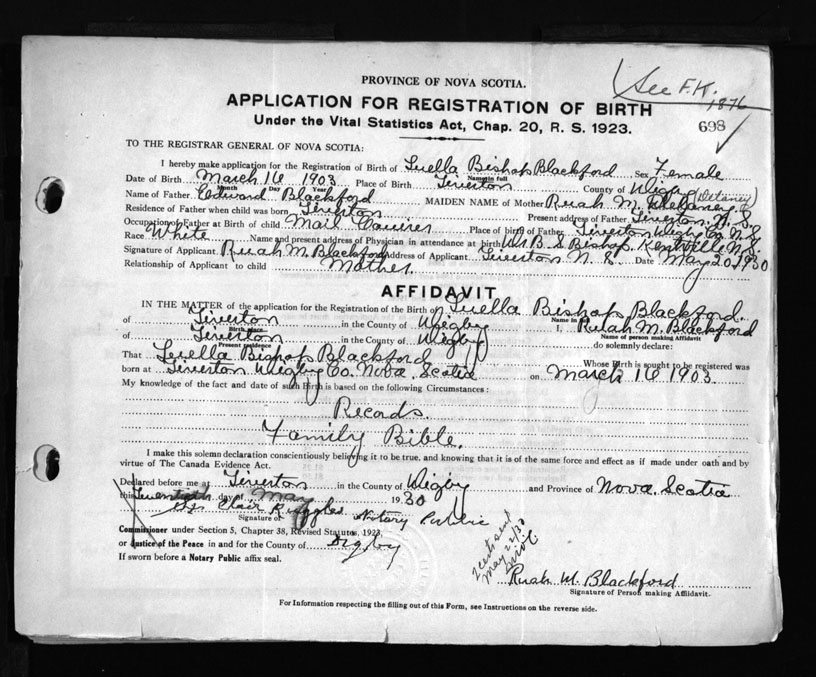 See F.K.
1876
PROVINCE OF NOVA SCOTIA.
APPLICATION FOR REGISTRATION OF BIRTH
Under the Vital Statistics Act, Chap. 20, R. S. 1923.
698
TO THE REGISTRAR GENERAL OF NOVA SCOTIA:
I hereby make application for the Registration of Birth of Luella Bishop Blackford Sex Female
Name in full
Date of Birth March 16 1903 Place of Birth Tiverton County of Digby
Month Day Year
(Delaney)
Name of Father Edward Blackford MAIDEN NAME of Mother Ruah M. Delaney
Residence of Father when child was born Tiverton Present address of Father Tiverton N. S.
Occupation of Father at Birth of child Mail Carrier Place of birth of Father Tiverton Digby Co. N.S.
Race White Name and present address of Physician in attendance at birth Dr B. S. Bishop Kentville N.S.
Signature of Applicant Ruah M. Blackford Address of Applicant Tiverton N. S. Date May 20, 1930
Relationship of Applicant to child Mother
AFFIDAVIT
IN THE MATTER of the application for the Registration of the Birth of Luella Bishop Blackford
Name in full
of Tiverton in the County of Digby I, Ruah M. Blackford
Birth place Name of person making Affidavit
of Tiverton in the County of Digby do solemnly declare:
Present residence
That Luella Bishop Blackford Whose Birth is sought to be registered was
born at Tiverton Digby Co. Nova Scotia on March 16 1903
My knowledge of the fact and date of such Birth is based on the following Circumstances:
Records
Family Bible.
I make this solemn declaration conscientiously believing it to be true, and knowing that it is of the same force and effect as if made under oath and by
virtue of The Canada Evidence Act.
Declared before me at Tiverton in the County of Digby and Province of Nova Scotia
this Twentieth day of May 1930
Clair Ruggles Notary Public
Signature of
Commissioner under Section 5, Chapter 38, Revised Statutes, 1923,
or Justice of the Peace in and for the County of Digby
If sworn before a Notary Public affix seal.
sent
May 22/30
Ruah M. Blackford
Signature of Person making Affidavit.
For Information respecting the filling out of this Form, see Instructions on the reverse side.